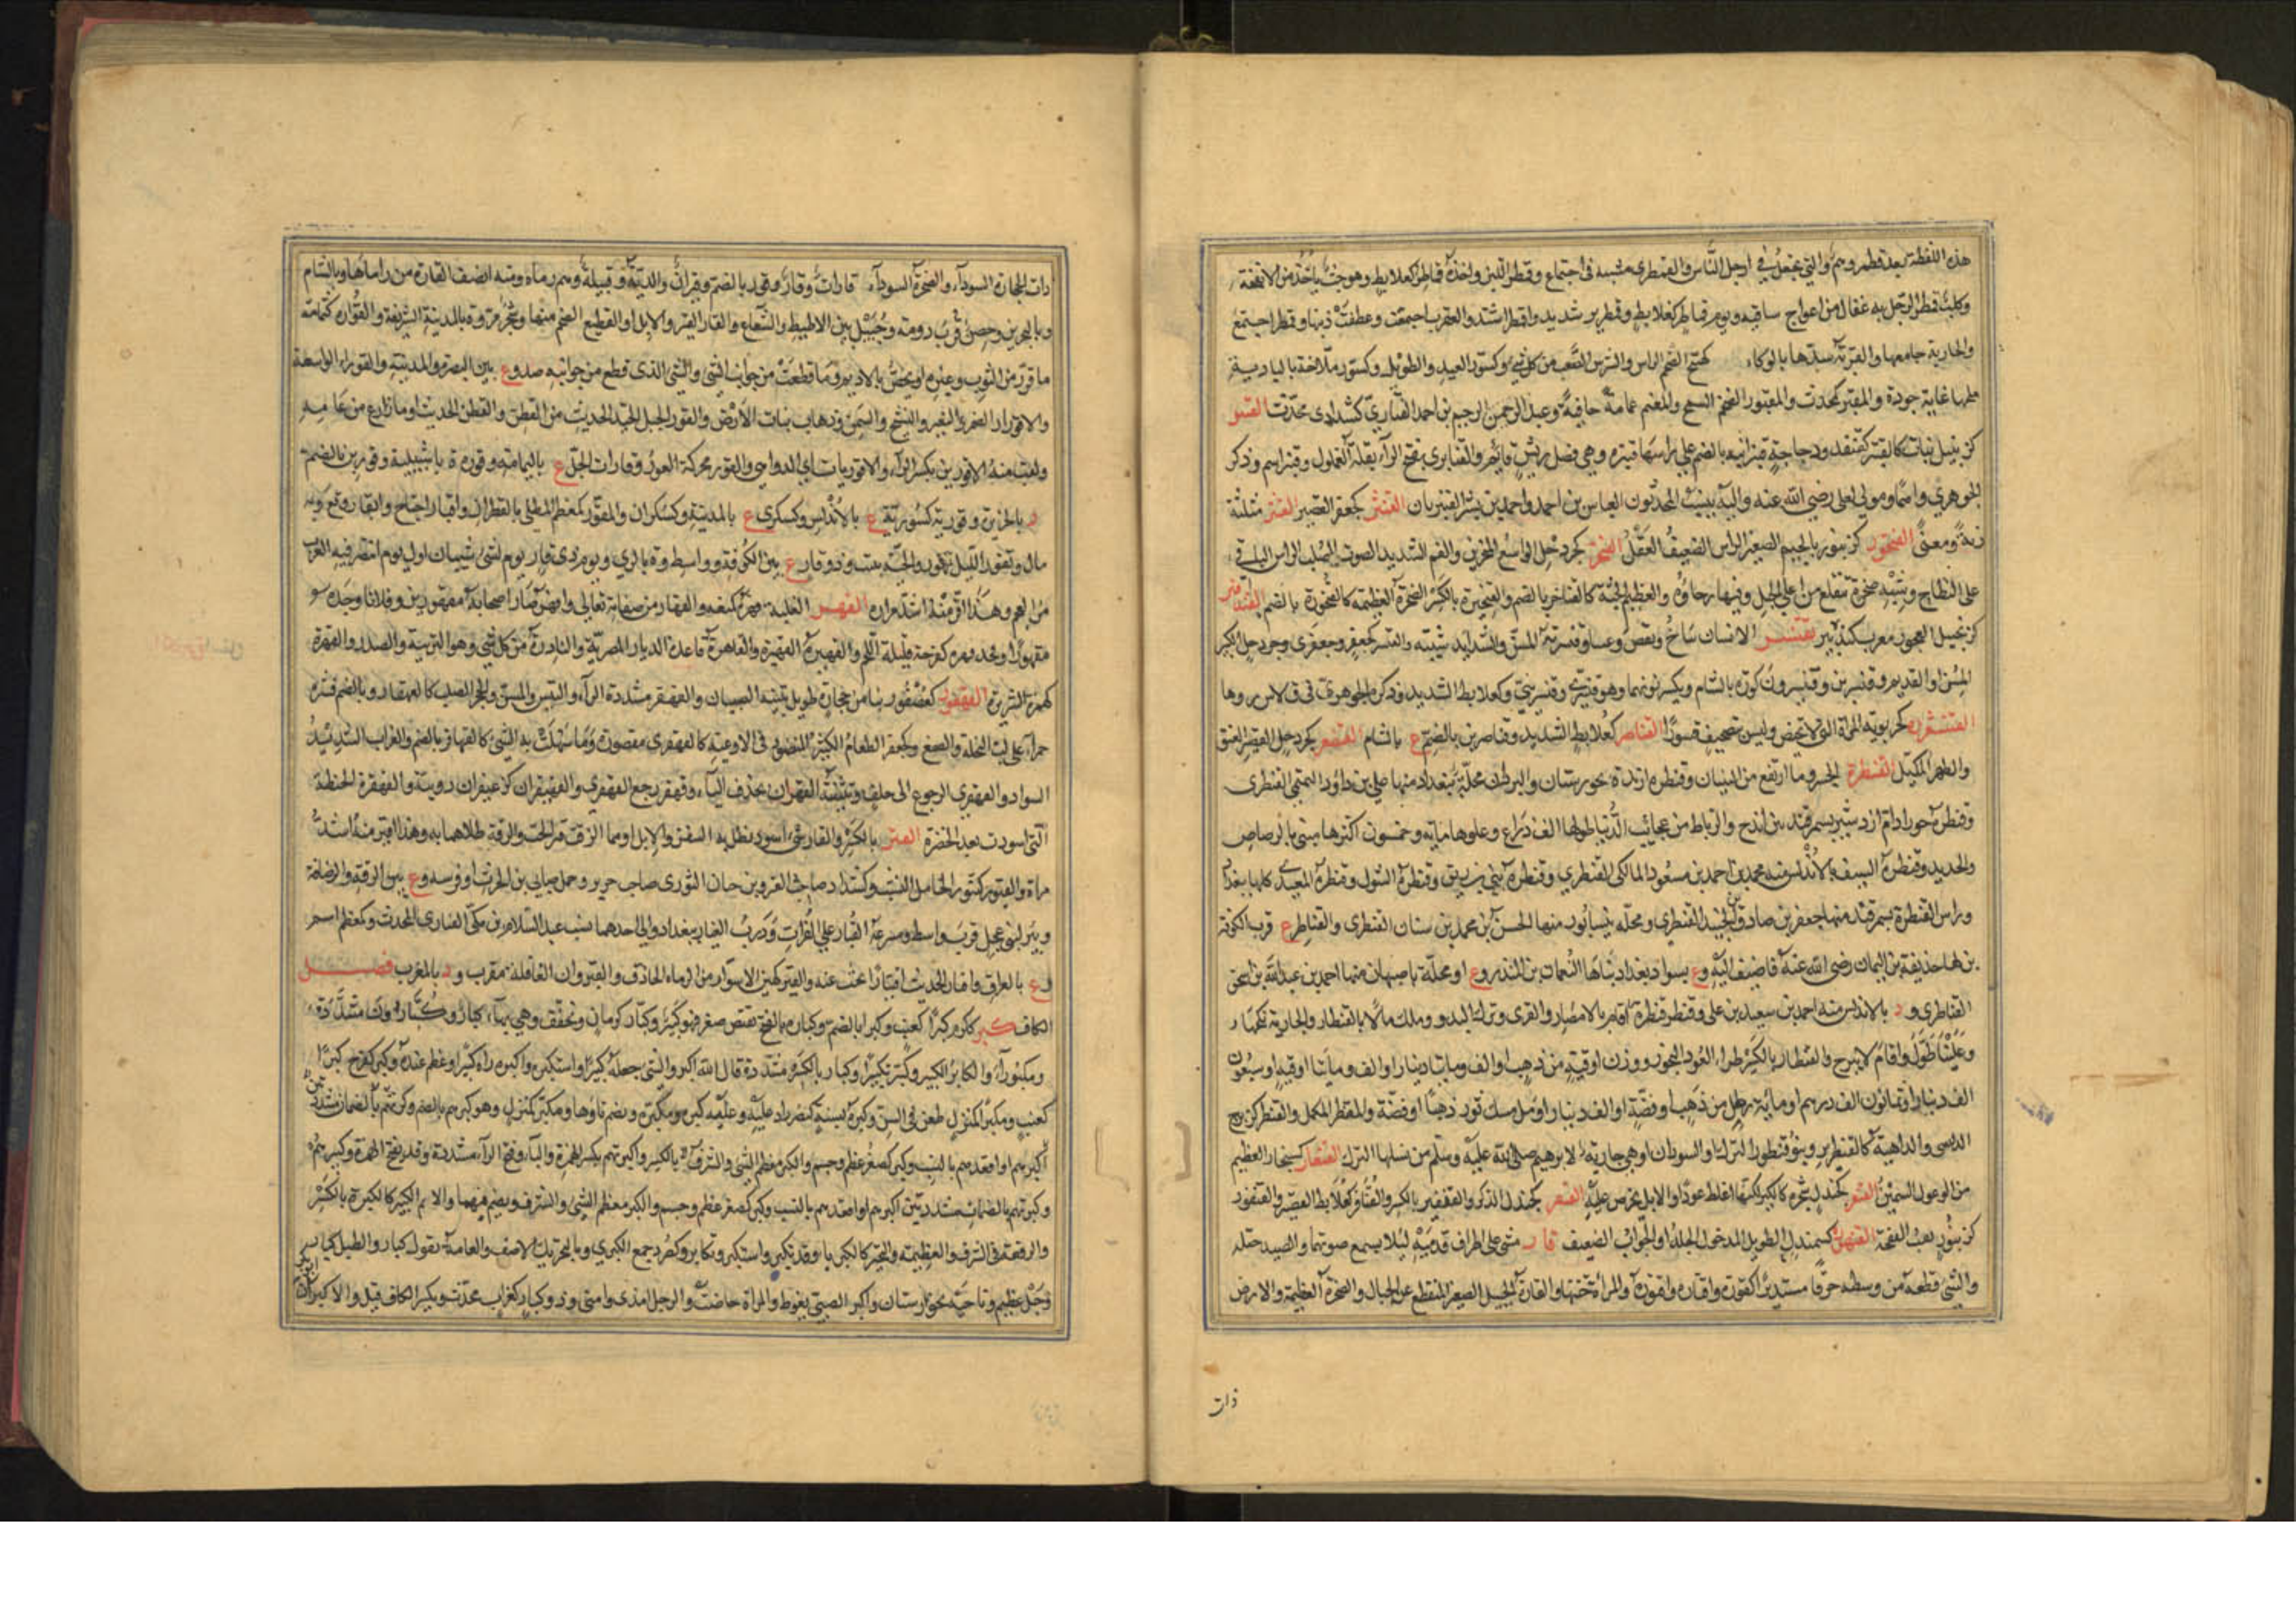 هذه اللفظة بعد قمطر وهم والتي تجعل في ارجل الناس والقمطرى مشية في اجتماع وقمطر اللبن واخذه قماطر كعلابط وهو خبث ياخذ من الانفخة
وكلب قمطر الرجل به عقال من اعوجاج ساقيه ويوم قماطر كعلابط وقمطرير شديد واقمطر اشتد والعقرب اجتمعت وعطفت ذنبها وقمطر اجتمع
والجارية جامعها والقربة سدها بالوكاء الضخم الراس والشرس الصعب من كل شئ وكسنور العبد والطويل وكسنور
عمامة وعبد الرحمن بن احمد القناري كشدادى محدث القنبر
كزنبيل نبات كالقنبر كقنفد ودجاجة قنبرانية بالضم على راسها قنبرة وهي فضل ريش قائم والقنابرى بفتح الراء بقلة الغملول وقنبر اسم وذكر
الجوهري واهما ومولى لعلي رضي الله عنه واليه ينسب المحدثون العباس بن احمد واحمد بن بشر القنبريان القنثر كجعفر القصير القنثر مثلثة
زنة ومعنى القنجور كزنبور بالجيم الصغير الراس الضعيف العقل القنخر كجردحل الواسع المنخرين والفم الشديد الصوت الصلب الراس الباقي
على النطاح وشبه صخرة تنقلع من اعلى الجبل وفيها رخاوة والعظيم الجثة كالقناخر بالضم والقنخيرة بالكسر الصخرة العظيمة كالقنخورة بالضم القندفير
كزنجبيل العجوز معرب كندبير تقنسر الانسان شاخ وتقبض وعسا وقنسرته السن والشدايد شيبته والقنسر كجعفر وجعفرى وجردحل الكبير
المسن او القديم وقنسرين وقنسرون كورة بالشام وتكسر نونهما وهو قنسري وقنسريني وكعلابط الشديد وذكره الجوهري في ق س ر وهما
القنشورة كخربوية المراة التي لا تحيض وليس تصحيف قشورا القناصر كعلابط الشديد وقناصرين بالضم ع بالشام القنصعر كجردحل القصير العنق
والظهر المكتل القنطرة الجسر وما ارتفع من البنيان وقنطرة ة بخورستان والبردان محلة ببغداد منها علي بن داود التميمي القنطرى
وقنطرة خوراذام اردشير بسمرقند بين ايذج والرباط من عجائب الدنيا طولها الف ذراع وعلوها مايه وخمسون اكثرها مبنى بالرصاص
والحديد وقنطرة السيف بالاندلس منه محمد بن احمد بن مسعود المالكى القنطري وقنطرة بني زريق وقنطرة الشوك وقنطرة المعبدى كلها ببغداد
وراس القنطرة بسمرقند منها جعفر بن صادق بن الجنيد القنطري ومحلة بنيسابور منها الحسن بن محمد بن سنان القنطرى والقناطر ع قرب الكوفة
نزلها حذيفة بن اليمان رضي الله عنه فاضيف اليه وع بسواد بغداد بناها النعمان بن المنذر وع او محلة باصبهان منها احمد بن عبد الله بن اسحق
القناطرى و د بالاندلس منه احمد بن سعيد بن على وقنطر قنطرة اقام بالامصار والقرى وترك البدو وملك مالا بالقنطار والجارية نكحها
وعلينا طول واقام لا يبرح والقنطار بالكسر طراء العود البخور ووزن اوقية من ذهب او الف وماتا دينار او الف ومايتا اوقية او سبعون
الف دينار او ثمانون الف درهم او مائة رطل من ذهب او فضة او الف دينار او ملء مسك ثور ذهبا او فضة والمقنطر المكمل والقنطر كزبرج
الدبسى والداهية كالقنطرير وبنو قنطورا الترك او السودان او هي جارية لابرهيم صلى الله عليه وسلم من نسلها الترك القنغار كسنجار العظيم
من الوعول السمين القنعر شجرة كالكبر لكنها اغلظ عودا والابل تحرص عليه القنفر كجندل الذكر والقنفير بالكسر والقنافر كعلابط القصير والقنفور
كزنبور نعت الفقحة القنهور كسمندل الطويل المدخول الجلد او الخوار الضعيف قار مشى على اطراف قدميه لئلا يسمع صوتهما والصيد ختله
والشئ قطعه من وسطه خرقا مستديرا كقوره واقتاره واقتوره والمراة ختنها والقارة الجبيل الصغير المنقطع عن الجبال والصخرة العظيمة والارض
ذات
ذات الحجارة السوداء والصخرة السوداء قارات وقار وقور بالضم وقيران والدبة وقبيلة وهم رماة ومنه انصف القارة من راماها وبالشام
وبالبحرين وحصن قرب دومة وجبيل بين الاطيط والشعاع والقار القير والابل او القطيع الضخم منها وشجر مر وة بالمدينة الشريفة والقوارة كثمامة
ما قور من الثوب وغيره او يخص بالاديم وما قطعت من جوانب الشئ والشئ الذى قطع من جوانبه ضد وع بين البصرة والمدينة والقوراء الواسعة
والاقورار الضمر والتغير والتشنج والسمن وذهاب نبات الارض والقور الحبل الجيد الحديث من القطن والقطن الحديث او ما زرع من عامه
ولقيت منه الاقورين بكسر الراء والاقوريات اي الدواهي والقور محركة العور وقارات الحبل ع باليمامة وقورة ة باشبيلية وقورين بالضم
د بالجزيرة وقورية كسورية ع بالاندلس وكسكرى ع بالمدينة وكسكران والمقور كمعظم المطلي بالقطران واقتار احتاج وانقار وقع وبه
مال وتقور الليل تهور والحية تثنت وذو قار ع بين الكوفة وواسط وة بالري ويوم ذى قار يوم لبنى شيبان اول يوم انتصر فيه العرب
من العجم وهذا اقير منه اشد مرارة القهر الغلبة قهره كمنعه والقهار من صفاته تعالى واقهر صار اصحابه مقهورين وفلانا وجده
مقهورا وفخذ قهرة كفرحة قليلة اللحم والقهيرة القهيرة والقاهرة قاعدة الديار المصرية والبادرة من كل شئ وهو التريبة والصدر والقهرة
كهمزة الشريرة القهقور كعصفور بناء من حجارة طويل يبنيه الصبيان والقهقر مشددة الراء التيس المسن والحجر الصلب كالقهقار وبالضم قشرة
حمراء على لب النخلة والصمغ وكجعفر الطعام الكثير المنضود في الاوعية كالقهقرى مقصورة وما سهكت به الشئ كالقهاقر بالضم والغراب الشديد
السواد والقهقرى الرجوع الى خلف وتثنيته القهقران بحذف الياء وقهقر رجع القهقرى والقهيقران كزعيفران دويبة والقهقرة الحنطة
التى اسودت بعد الخضرة القير بالكسر والقار شئ اسود يطلى به السفن والابل او هما الزفت قير الحب والزق طلاهما به وهذا اقير منه اشد
مرارة والقيور كتنور الخامل النسب وكشداد صاحب القزوين حان الثورى صاحب حرير وجمل ضابى بن الحرث او فرسه وع بين الرقة والرصافة
وبئر لبنى عجل قرب واسط ومشرعة القيار على الفرات ودرب القيار ببغداد والى احدهما نسب عبد السلام بن مكى القيارى المحدث وكمعظم اسم
وع بالعراق واقتار الحديث اقتيارا بحث عنه والقير كهين الاسوار من الرماة الحاذق والقيروان القافلة معرب و د بالمغرب فصل
الكاف كبر ككرم كبرا كعنب وكبرا بالضم وكبارة بالفتح نقيض صغر فهو كبير وكبار كرمان وتخفف وهي بهاء كبار وكبارون مشددة
ومكبوراء والكابر الكبير وكبر تكبيرا وكبارا بالكسر مشددة قال الله اكبر والشئ جعله كبيرا واستكبره واكبره راه كبيرا وعظم عنده وكبر كفرح كبرا
كعنب ومكبرا كمنزل طعن في السن وكبره بسنة كنصر زاد عليه وعلته كبرة ومكبرة وتضم باؤها ومكبر كمنزل وهو كبرهم بالضم
اكبرهم او اقعدهم بالنسب وكبر كصغر عظم وجسم والكبر معظم الشئ والشرف بالكسر واكبرتهم بكسر الهمزة والباء وفتح الراء مشددة وقد تفتح الهمزة وكبرهم
وكبرتهم بالضمات مشددتين اكبرهم او اقعدهم بالنسب وكبر كصغر عظم وجسم والكبر معظم الشئ والشرف ويضم فيهما والاثم الكبير كالكبرة بالكسر
والرفعة في الشرف والعظمة والتجبر كالكبرياء وقد تكبر واستكبر وتكابر وكصرد جمع الكبرى وبالتحريك الاصف والعامة تقول كبار والطبل كبار
وجبل عظيم وناحية بخوارستان واكبر الصبي تغوط والمراة حاضت والرجل امذى وامنى وذو كبار كغراب محدث وبكسر الكاف قيل والاكبران